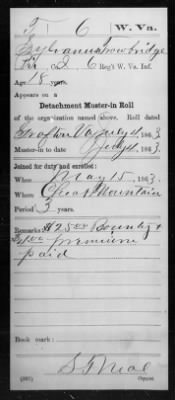 T 6 W. Va.
Sylvanus Trowbridge
Pri, Co. I, 6 Reg't W. Va. Inf.
Age 18 years.
Appears on a
Detachment Muster-in Roll
of the organization named above. Roll dated
Grafton Va July 4, 1863
Muster-in date July 4, 1863.
Joined for duty and enrolled:
When May 15, 1863.
Where Cheat Mountain
Period 3 years.
Remarks $25.00 Bounty &
$4.00 premium
paid
Book mark:
S. T. Neal
Copyist.